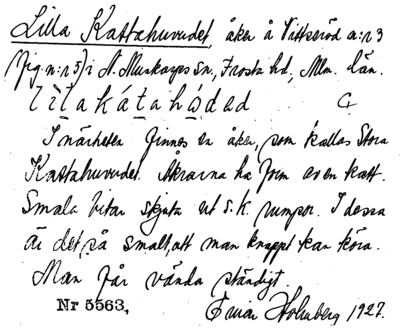 Lilla Kattahuvudet, åker å Vittseröd a:r 3
(fig n:r 5) i N. Munkarps sn, Frosta hd, Mlm. län.
lìlakátahö̀ded
I närheten finnes en åker, som kallas Stora
Kattahuvudet. Åkrarna ha form av en katt.
Smala bitar skjuta ut s.k. rumpor. I dessa
är det så smalt, att man knappt kan köra.
Man får vända ständigt.
Nr 5563, Einar Holmberg 1927.